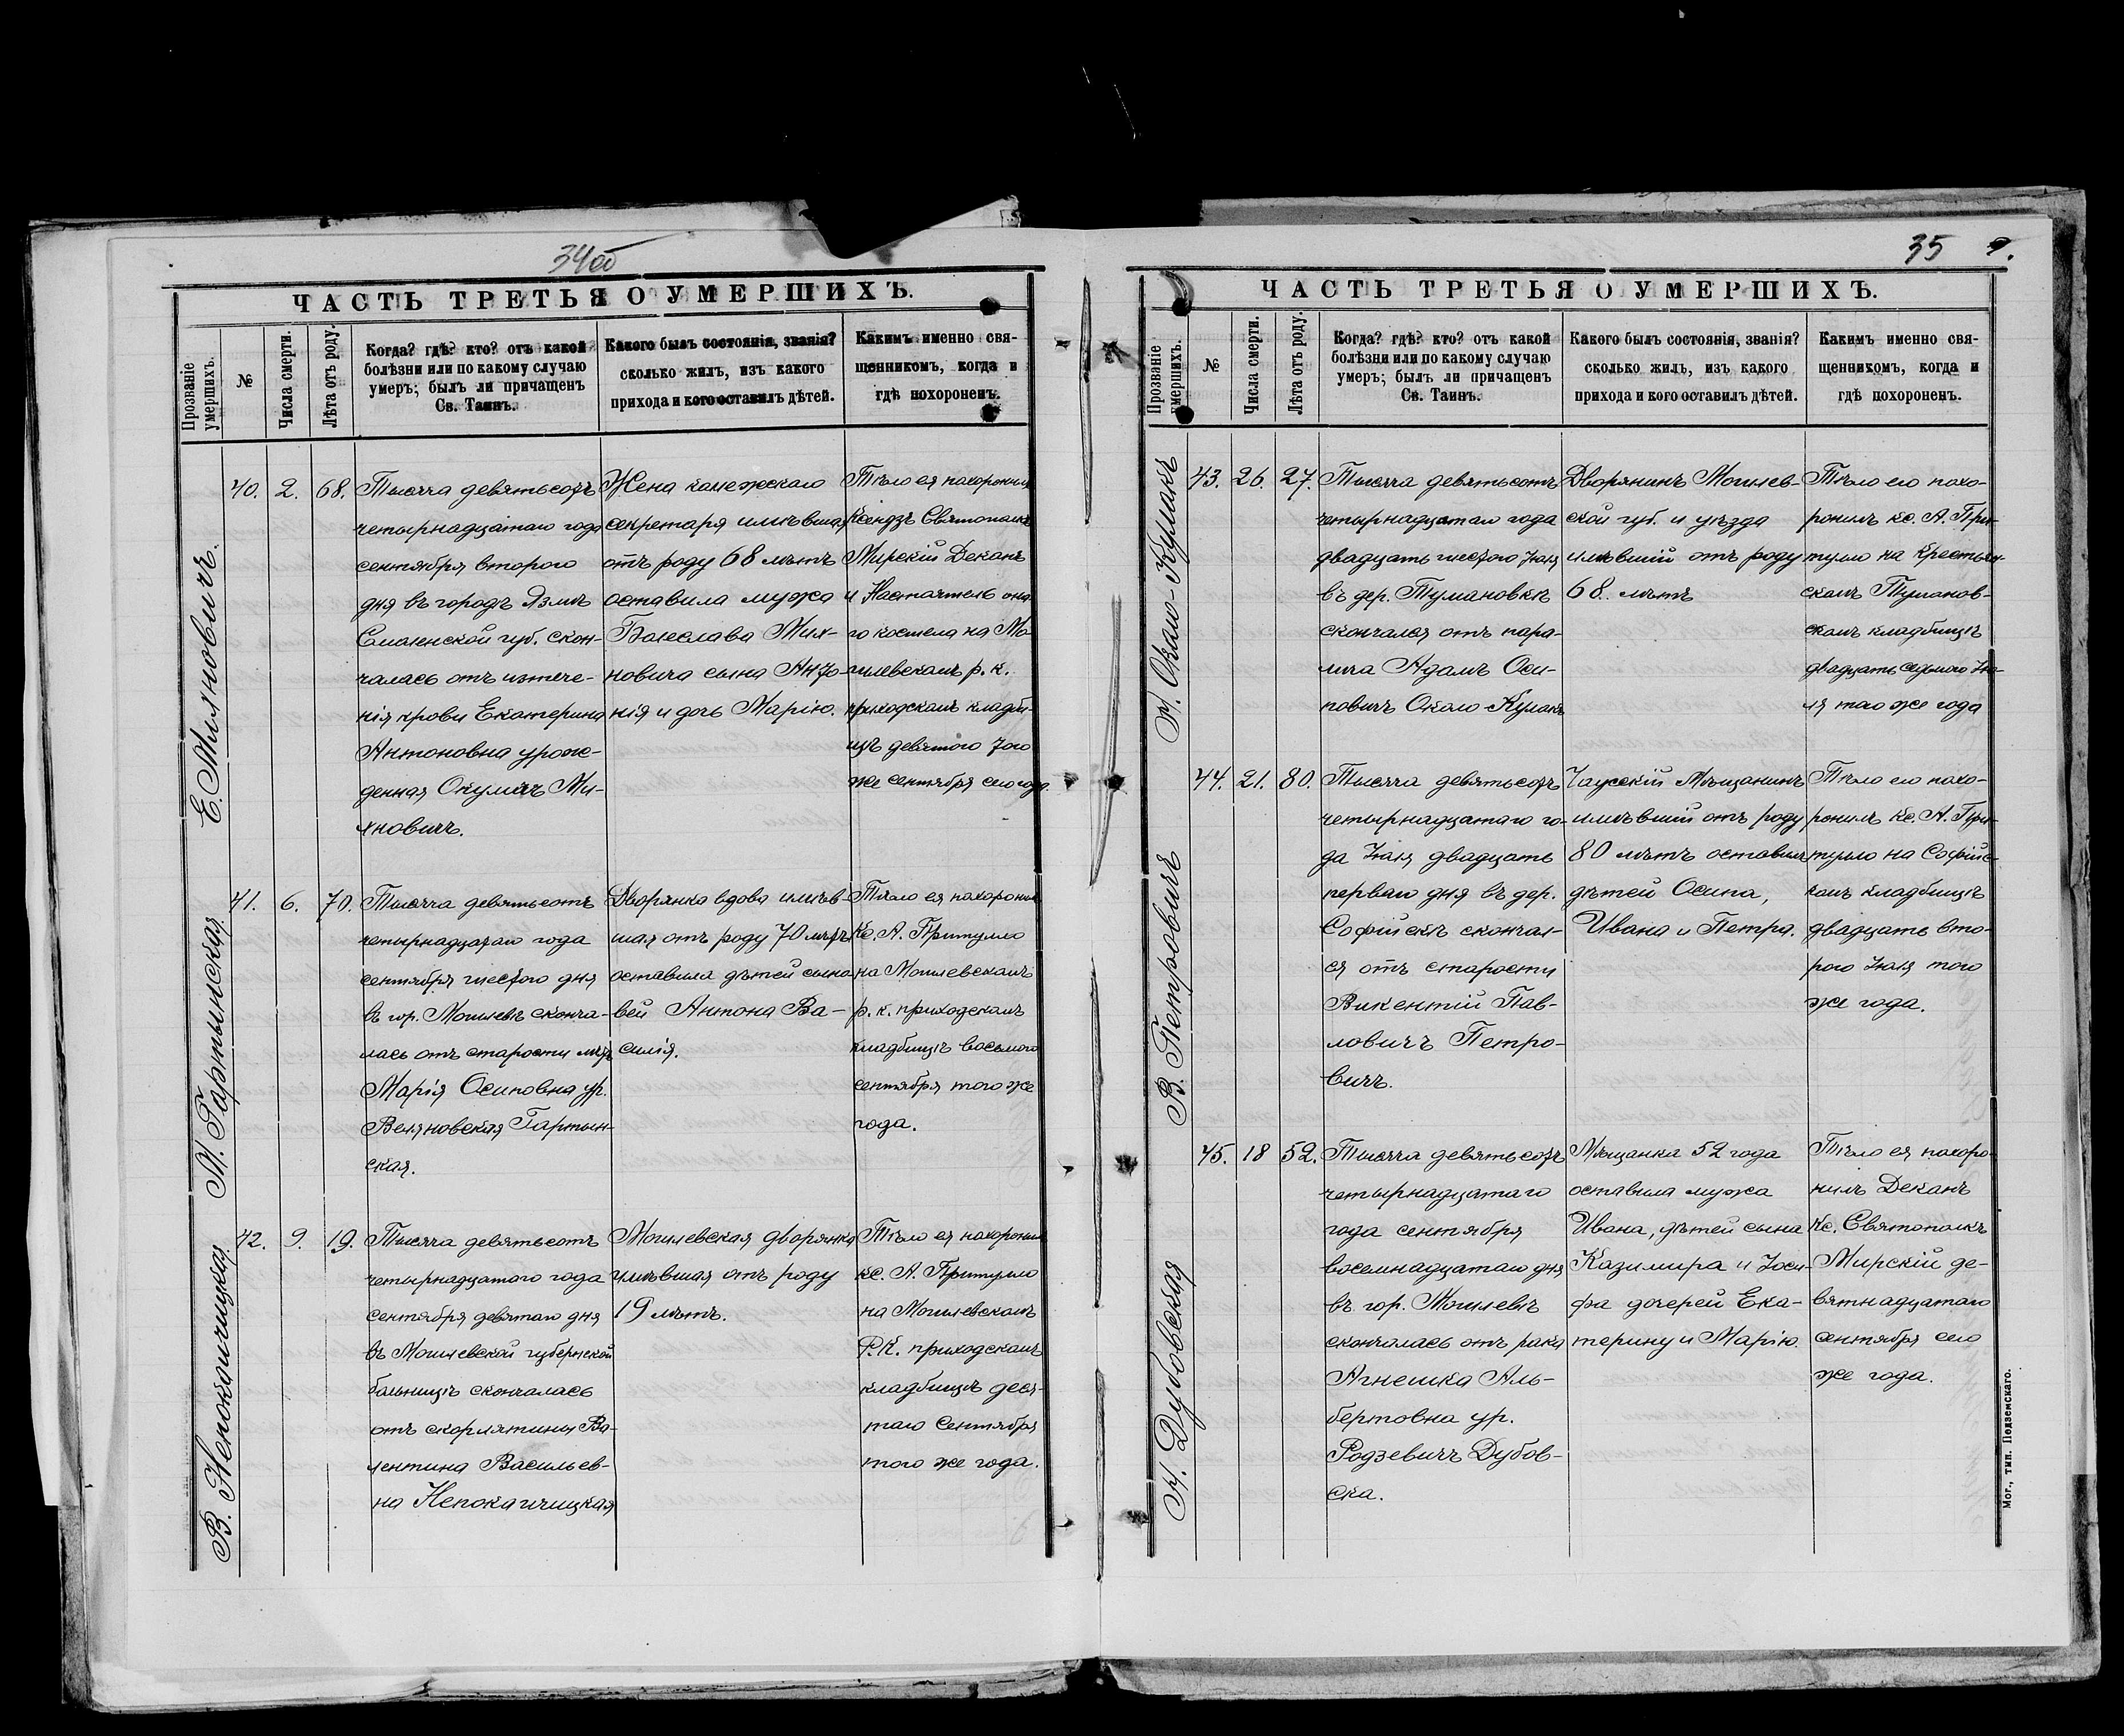 34об
ЧАСТЬ ТРЕТЬЯ О УМЕРШИХЪ.
Прозваніе умершихъ.
№
Числа смерти.
Лѣта отъ роду.
Когда? гдѣ? кто? отъ какой
болѣзни или по какому случаю
умеръ; былъ ли причащенъ
Св. Таинъ.
Какого былъ состоянія, званія?
сколько жилъ, изъ какого
прихода и кого оставилъ дѣтей.
Какимъ именно свя-
щенникомъ, когда и
гдѣ похороненъ.
Е. Михновичъ.
40. 2. 68.
Тысяча девятьсотъ
четырнадцатаго года
сентября второго
дня въ городѣ
Смоленской губ. скон-
чалась отъ истече-
нія крови Екатерина
Антоновна урож-
денная Окуличъ Ми-
хновичъ.
Жена колежскаго
секретаря имѣвшая
отъ роду 68 лѣтъ
оставила мужа
Болеслава Мих-
новича сына Анто-
нія и дочь Марію.
Тѣло ея похоронилъ
Ксендзъ Святополкъ
Мирскій Деканъ
и Настоятель она-
го костела на Мо-
гилевскомъ р. к.
приходскомъ кладби-
щѣ девятого того
же сентября сего года.
М. Гартынская.
41. 6. 70.
Тысяча девятьсотъ
четырнадцатаго года
сентября шестого дня
въ гор. Могилевѣ сконча-
лась отъ старости лѣтъ
Марія Осиповна ур.
Веляновская Гартын-
ская.
Дворянка вдова имѣв-
шая отъ роду 70 лѣтъ
оставила дѣтей сыно-
вей Антона Ва-
силія.
Тѣло ея похоронилъ
Кс. А. Притулло
на Могилевскомъ
р. к. приходскомъ
кладбищѣ восьмого
сентября того же
года.
В. Непокойчицкая
42. 9. 19.
Тысяча девятьсотъ
четырнадцатого года
сентября девятаго дня
въ Могилевской губернской
больницѣ скончалась
отъ скорлятины Ва-
лентина Васильев-
на Непокайчицкая
Могилевская дворянка
имѣвшая отъ роду
19 лѣтъ.
Тѣло ея похоронилъ
кс. А. Притулло
на Могилевскомъ
Р.К. приходскомъ
кладбищѣ деся-
таго Сентября
того же года.
35
ЧАСТЬ ТРЕТЬЯ О УМЕРШИХЪ.
Прозваніе умершихъ.
№
Числа смерти.
Лѣта отъ роду.
Когда? гдѣ? кто? отъ какой
болѣзни или по какому случаю
умеръ; былъ ли причащенъ
Св. Таинъ.
Какого былъ состоянія, званія?
сколько жилъ, изъ какого
прихода и кого оставилъ дѣтей.
Какимъ именно свя-
щенникомъ, когда и
гдѣ похороненъ.
А. Около-Кулакъ
43. 26. 27.
Тысяча девятьсотъ
четырнадцатаго года
двадцать шестого Іюля
въ дер. Тумановкѣ
скончался отъ пара-
лича Адамъ Оси-
повичъ Около-Кулакъ
Дворянинъ Могилев-
ской губ. и уѣзда
имѣвшій отъ роду
68 лѣтъ
Тѣло его похо-
ронилъ кс. А. При-
тулло на крестьян-
скомъ Туманов-
скомъ кладбищѣ
двадцать седьмого Ію-
ля того же года
В. Петровичъ
44. 21. 80.
Тысяча девятьсотъ
четырнадцатаго го-
да Іюля двадцать
перваго дня въ дер.
Софійскѣ скончал-
ся отъ старости
Викентій Пав-
ловичъ Петро-
вичъ.
Чаусскій Мѣщанинъ
имѣвшій отъ роду
80 лѣтъ оставилъ
дѣтей Осипа,
Ивана и Петра.
Тѣло его похо-
ронилъ Кс. А. При-
тулло на Софійс-
комъ кладбищѣ
двадцать вто-
рого Іюля того
же года.
А. Дубовская
45. 18 52.
Тысяча девятьсотъ
четырнадцатаго
года сентября
восемнадцатаго дня
въ гор. Могилевѣ
скончалась отъ рака
Агнешка Аль-
бертовна ур.
Родзевичъ Дубов-
ска.
Мѣщанка 52 года
оставила мужа
Ивана, дѣтей сына
Казимира и Іоси-
фа дочерей Ека-
терину и Марію.
Тѣло ея похоро-
нилъ Деканъ
Кс. Святополкъ
Мирскій де-
вятнадцатаго
сентября сего
же года.
Мог., тип. Подземскаго.